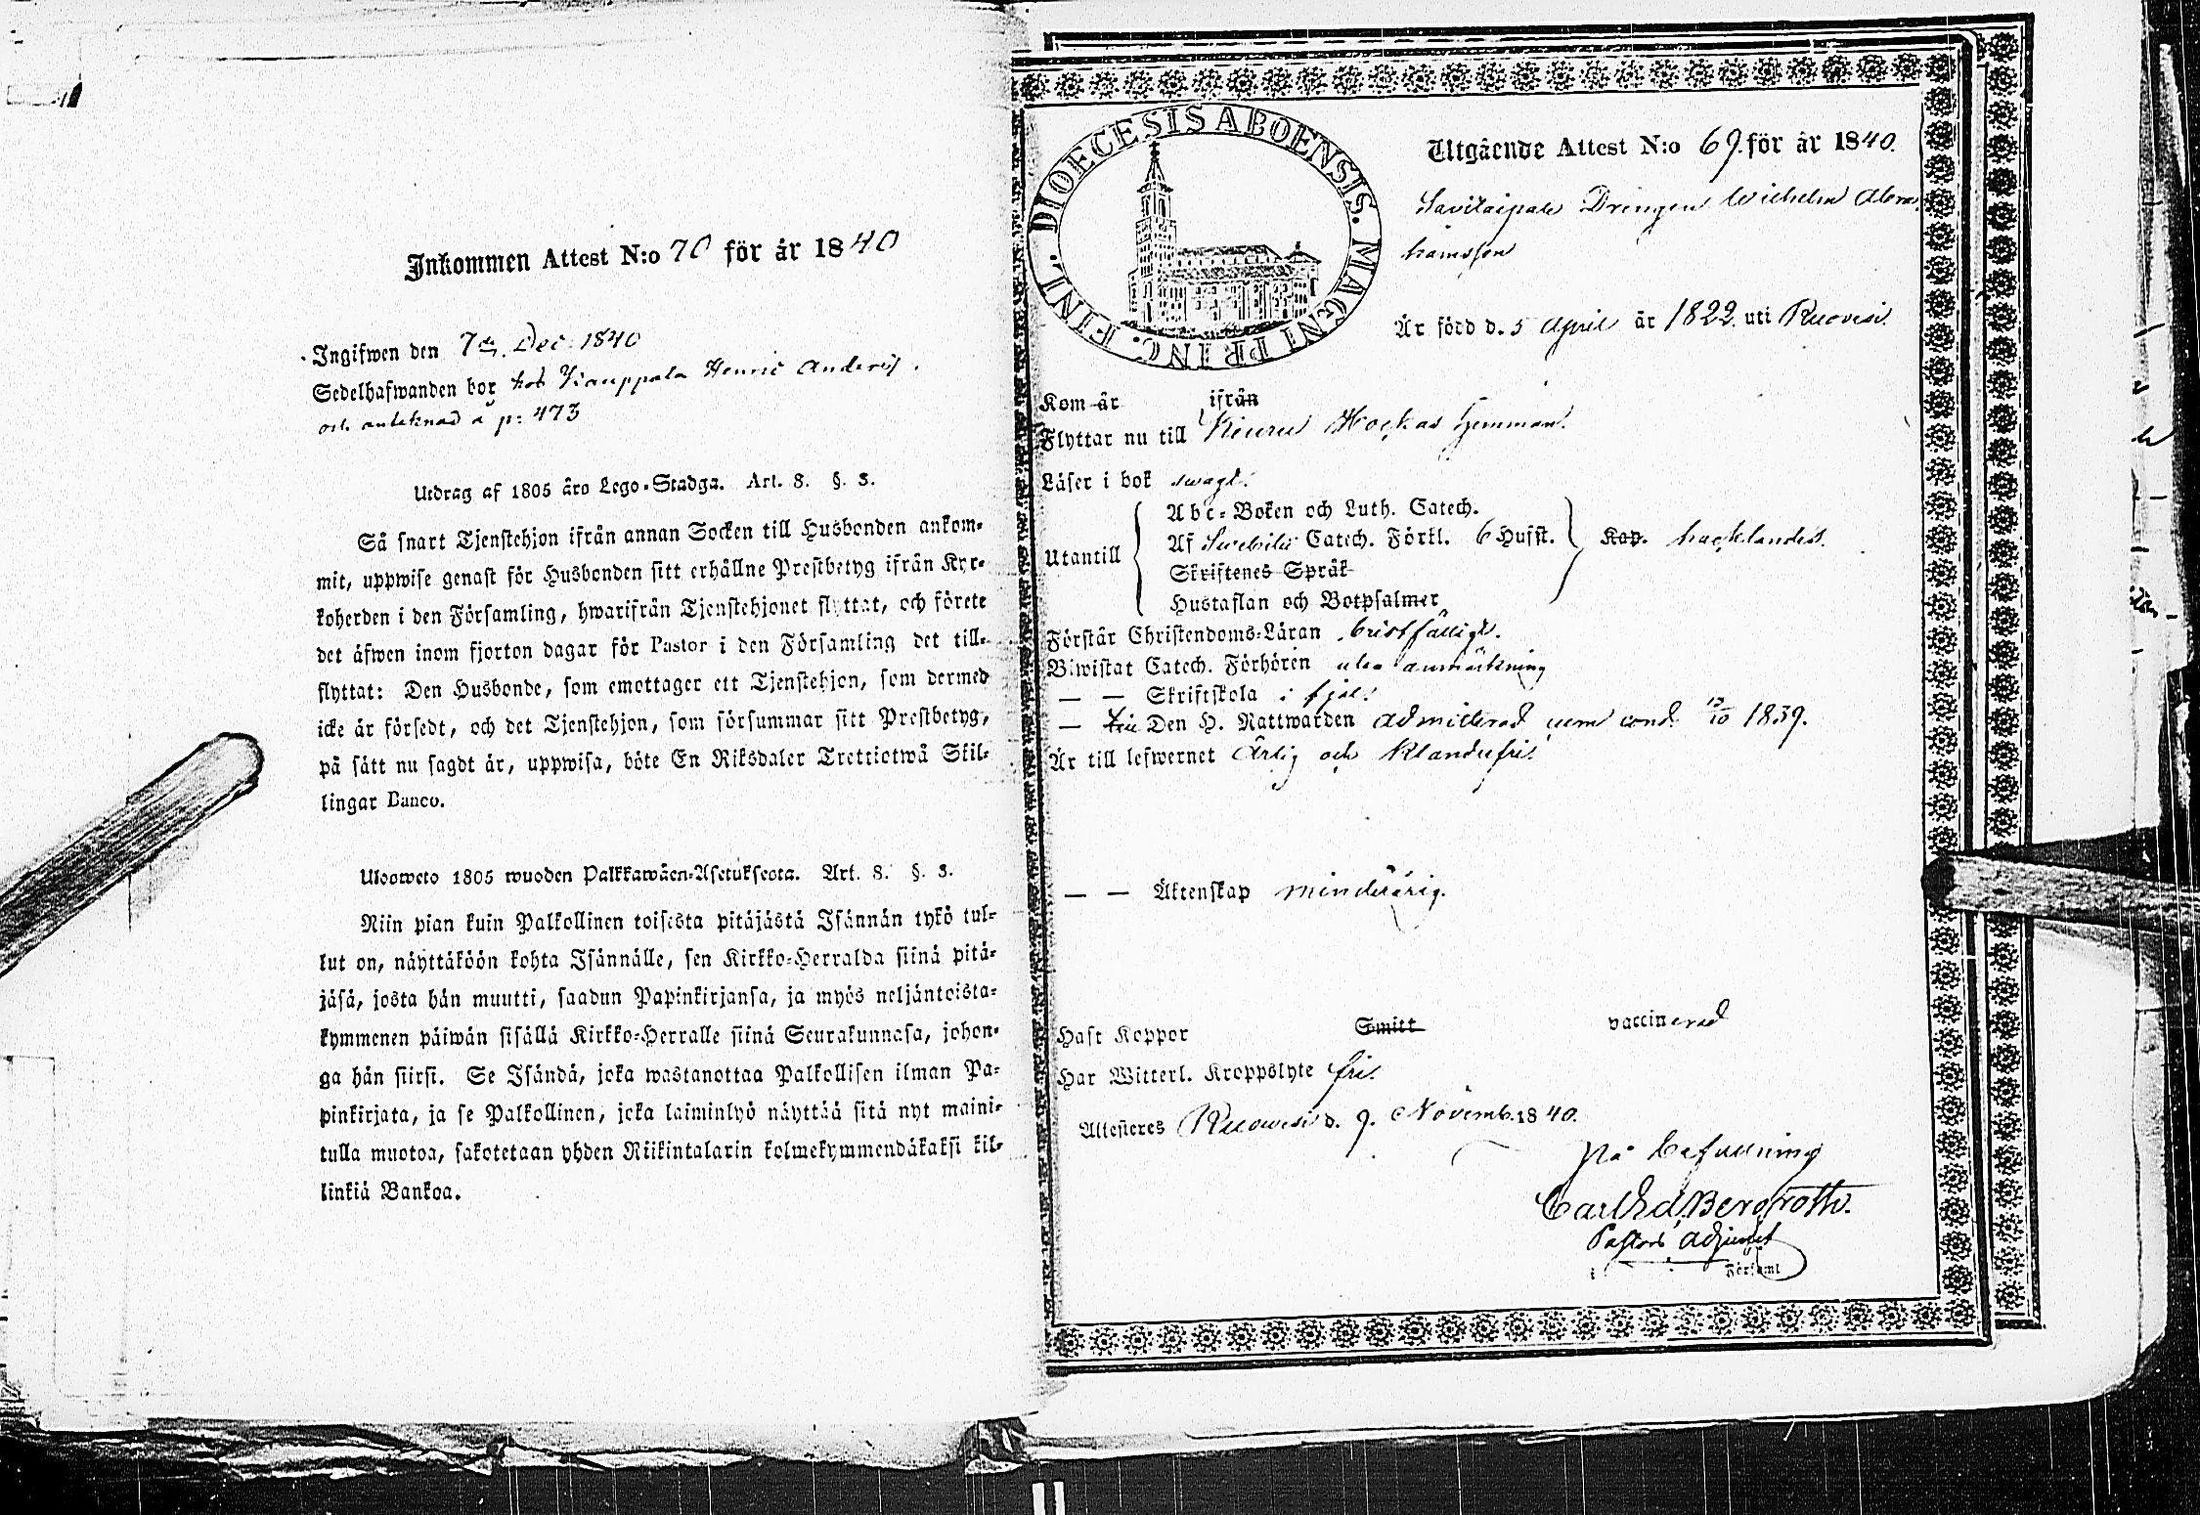 Inkommen Attest N:o 70 för år 1840
Ingifwen den 7de Dec. 1840
Sedelhafwanden bor hos Kauppala Henric Anders
och anteknad å p: 473
Utdrag af 1805 års Lego-Stadga. Art. 8. §. 3.
Så snart Tjenstehjon ifrån annan Socken till Husbonden ankom-
mit, uppwise genast för Husbonden sitt erhållne Prestbetyg ifrån Kyr-
koherden i den Församling, hwarifrån Tjenstehjonet flyttat, och förete
det äfwen inom fjorton dagar för Pastor i den Församling det till-
flyttat: Den Husbonde, som emottager ett Tjenstehjon, som dermed
icke är försedt, och det Tjenstehjon, som försummar sitt Prestbetyg,
på sätt nu sagdt är, uppwisa, böte En Riksdaler Trettiotwå Skil-
lingar Banco.
Ulosweto 1805 wuoden Palkkawäen-Asetuksesta. Art. 8. §. 3.
Niin pian kuin Palkollinen toisesta pitäjästä Isännän tykö tul-
lut on, näyttäköön kohta Isännälle, sen Kirkko-Herralda siinä pitä-
jäsä, josta hän muutti, saadun Papinkirjansa, ja myös neljäntoista-
kymmenen päiwän sisällä Kirkko-Herralle siinä Seurakunnasa, johon-
ga hän siirsi. Se Isändä, joka wastanottaa Palkollisen ilman Pa-
pinkirjata, ja se Palkollinen, joka laiminlyö näyttää sitä nyt maini-
tulla muotoa, sakotetaan yhden Riikintalarin kolmekymmendäkaksi kil-
linkiä Bankoa.
DIOECESIS ABOENSIS. MAGNI PRINC. FINL.
Utgående Attest N:o 69. för år 1840.
Savilaipale Drengen Wilhelm Abra-
hamsson
Är född d. 5 April år 1822. uti Ruovesi
Kom år ifrån
Flyttar nu till Keuru Hoskas hemman.
Läser i bok swagt.
Abc-Boken och Luth. Catech.
Utantill Af Swebilii Catech. Förkl. 6 Hufst. Kap. hacklandes.
Skriftenes Språk
Hustaflan och Botpsalmer
Förstår Christendoms-Läran bristfälligt.
Biwistat Catech. Förhören utan anmärkning
— — Skriftskola i fjol.
— Den H. Nattwarden admitterad cum cond. 13/10 1839.
Är till lefwernet Ärlig och klanderfri.
— — Äktenskap minderårig.
Haft Koppor Smitt vaccinerad
Har Witterl. Kroppslyte fri.
Attesteres Ruovesi d. 9. Novemb. 1840.
På befallning
Carl Ed. Bergroth.
Pastors Adjunct
i Församl